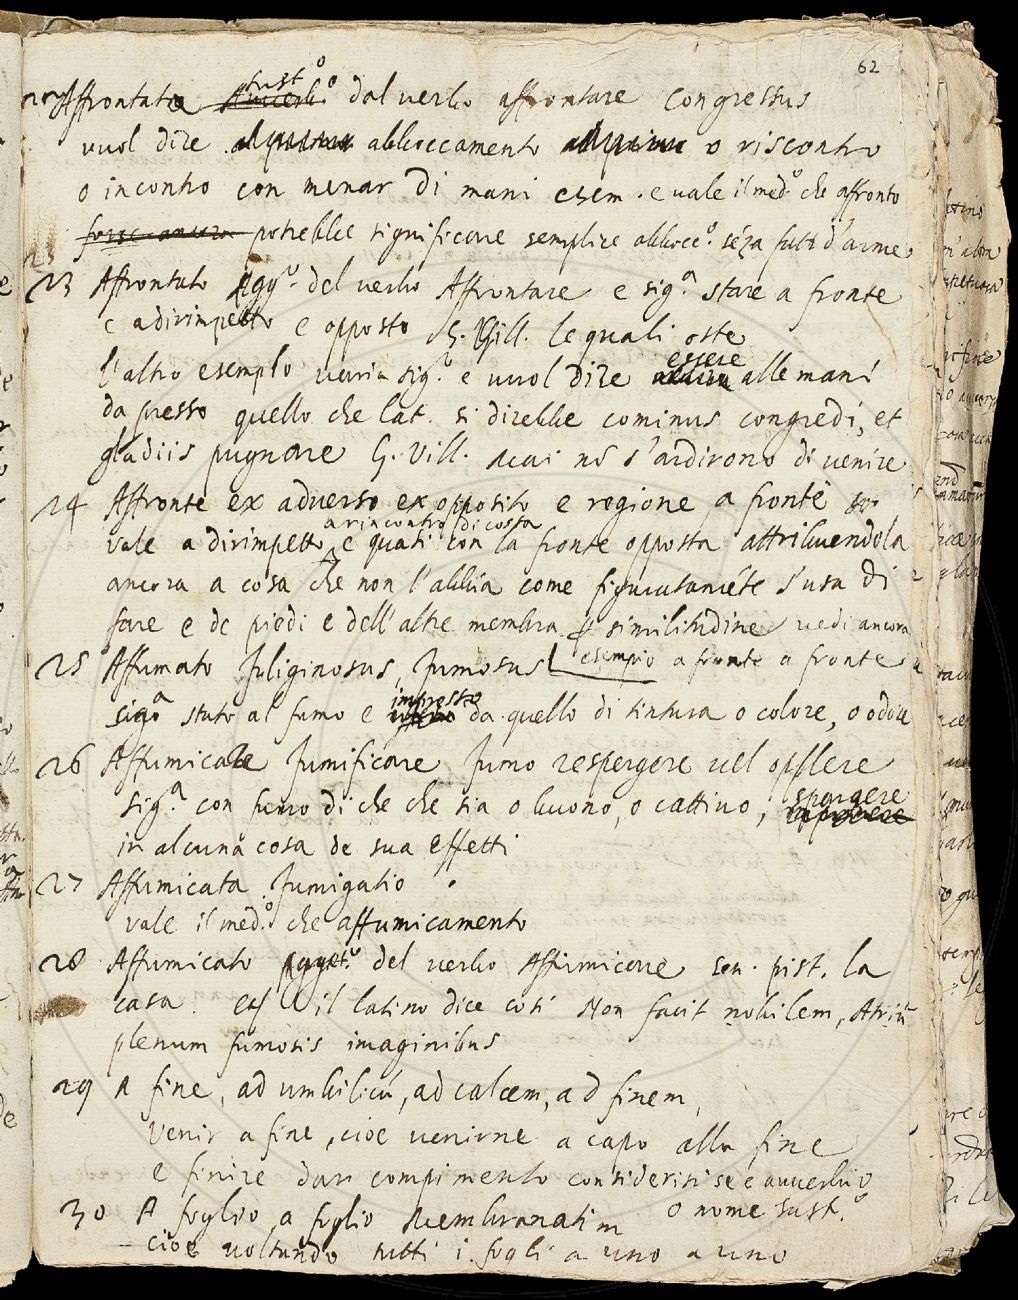 62
Affrontata sust.o dal verbo affrontare congressus
vuol dire abboccamento o riscontro
o incontro con menar di mani esem. e vale il med.o che affronto
forse ancora potrebbe significare semplice abbocc.o séza fatti d'arme
23 Affrontato Agg.o del verbo Affrontare e sig.a stare a fronte
e adirimpetto e opposto G. Vill. le quali oste
l'altro esemplo varia sig.o e vuol dire essere alle mani
da presso quello che lat. si direbbe cominus congredi, et
gladiis pugnare G. Vill. mai nō s'ardirono di venire
24 Affronte ex adverso ex opposito e regione a fronte
vale a dirimpetto a rincontro di costa e quasi con la fronte opposta attribuendola
ancora a cosa che non l'abbia come figuratamēte s'usa di
fare e de piedi e dell'altre membra similitudine vedi ancora
esempio a fronte a fronte
25 Affumato fuliginosus, fumosus
sig.a stato al fumo e impresso da quello di tintura o colore, o odore
26 Affumicare fumificare fumo respergere vel opplere
sig.a con fumo di che che sia o buono, o cattivo, spargere
in alcuna cosa de sua effetti
27 Affumicata fumigatio
vale il med.o che affumicamento
28 Affumicato aggett.o del verbo Affumicare sen. pist. la
casa il latino dice così Non facit nobilem, Atriū
plenum fumosis imaginibus
29 A fine, ad umbilicū, ad calcem, ad finem,
venir a fine, cioè venirne a capo alla fine
e finire dar compimento considerisi se è avverbio
o nome sust.o
30 A foglio a foglio membranatim
cioè voltando tutti i fogli a uno a uno